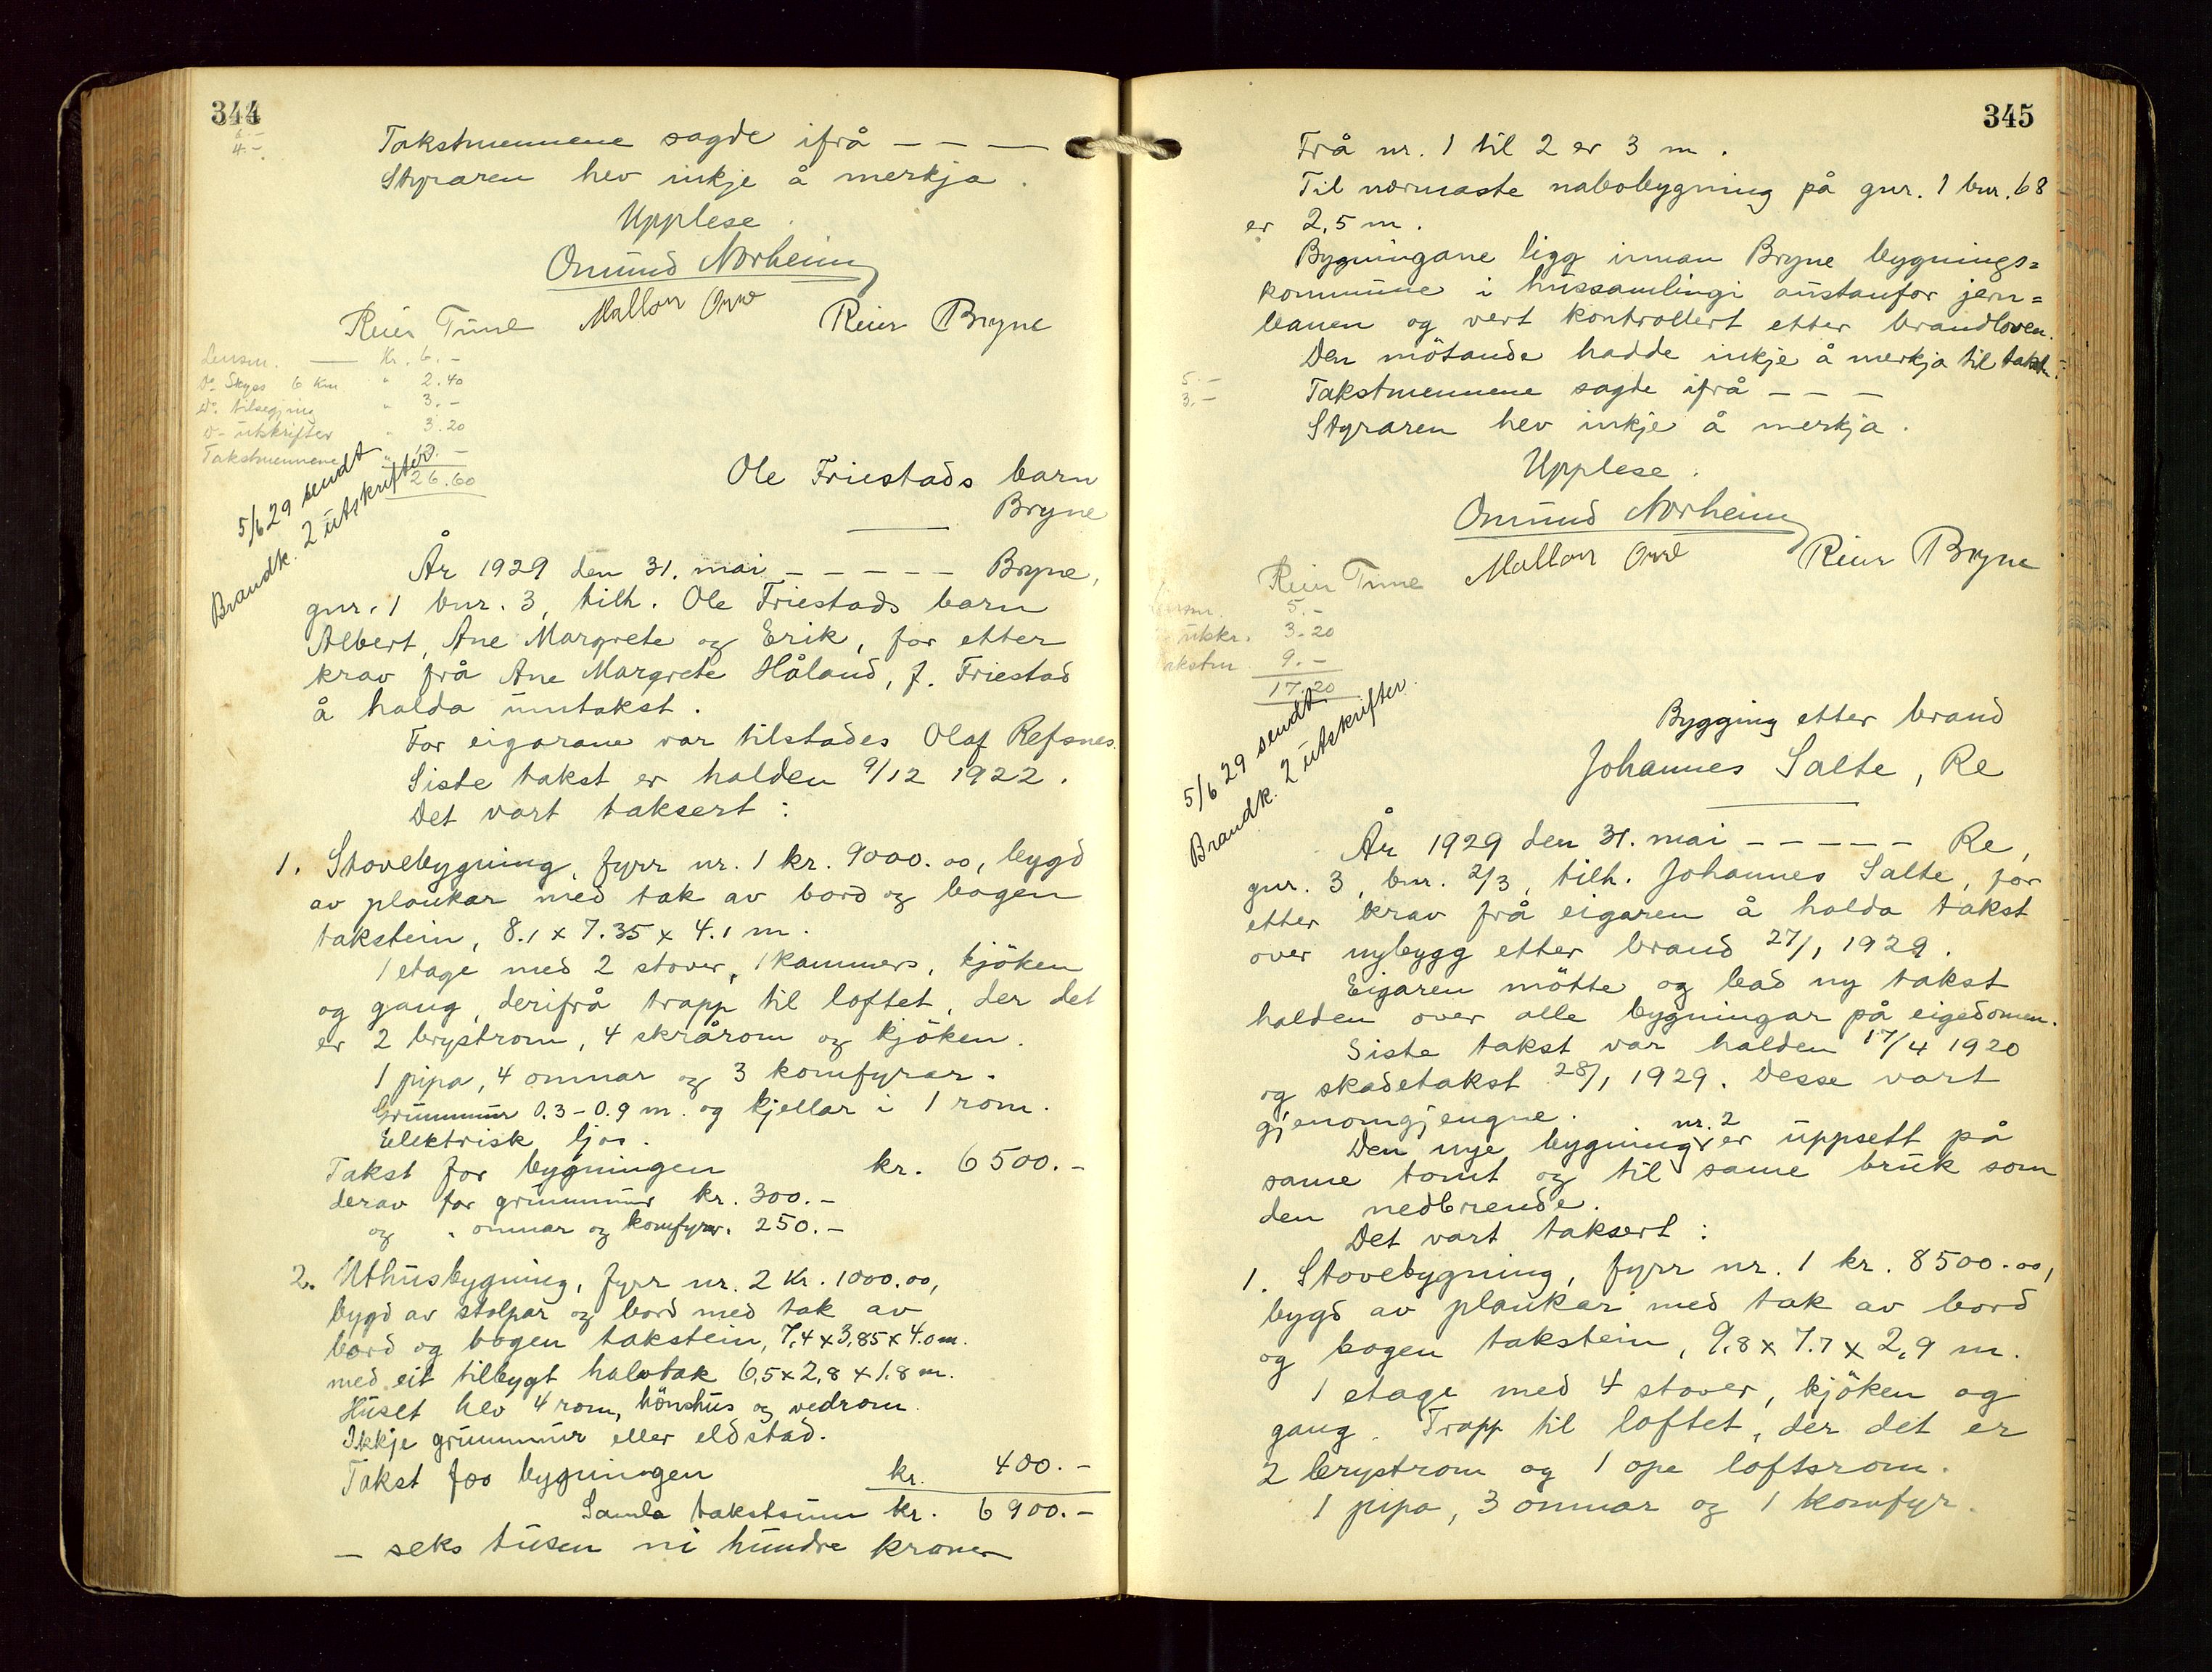 344
6.-
4.-
Takstmennene sagde ifrå — — —
Styraren hev inkje å merkja.
Upplese.
Omund Norheim
Reier Time Mallon Orre Reier Bryne
Lensm. — Kr. 6.-
Do. Skyss 6 km " 2.40
Do. tilsegjing " 3.-
Do. utskrifter " 3.20
Takstmennene " 12.-
26.60
5/6 29 sendt
Brandk. 2 utskrifter
Ole Friestads barn
Bryne
År 1929 den 31. mai — — — — — Bryne,
gnr. 1 bnr. 3, tilh. Ole Friestads barn
Albert, Ane Margrete og Erik, for etter
krav frå Ane Margrete Håland, f. Friestad
å halda umtakst.
For eigarane var tilstades Olaf Refsnes.
Siste takst er halden 9/12 1922.
Det vart taksert:
1. Stovebygning, fyrr nr. 1 kr. 9000.00, bygd
av plankar med tak av bord og bogen
takstein, 8.1 x 7.35 x 4.1 m.
1 etage med 2 stover, 1 kammers, kjöken
og gang, derifrå trapp til loftet, der det
er 2 brystrom, 4 skrårom og kjöken.
1 pipa, 4 omnar og 3 komfyrar.
Grunnmur 0.3-0.9 m. og kjellar i 1 rom.
Elektrisk ljos.
Takst for bygningen kr. 6500.-
derav for grunnmur kr. 300.-
og " omnar og komfyrar " 250.-
2. Uthusbygning, fyrr nr. 2 kr. 1000.00,
bygd av stolpar og bord med tak av
bord og bogen takstein, 7,4 x 3,85 x 4.0 m.
med eit tilbygt halvtak 6,5 x 2,8 x 1.8 m.
Huset hev 4 rom, hönshus og vedrom.
Ikkje grunnmur eller eldstad.
Takst for bygningen kr. 400.-
Samla takstsum kr. 6900.-
— seks tusen ni hundre kroner
345
Frå nr. 1 til 2 er 3 m.
Til nærmaste nabobygning på gnr. 1 bnr. 68
er 2,5 m.
Bygningane ligg innan Bryne bygnings=
kommune i hussamlingi austanfor jern=
banen og vert kontrollert etter brandloven.
Den mötande hadde inkje å merkja til taksten.
5.-
3.-
Takstmennene sagde ifrå — — —
Styraren hev inkje å merkja.
Upplese.
Omund Norheim
Reier Time Mallon Orre Reier Bryne
Lensm. 5.-
utskr. 3.20
Takstm. 9.-
17.20
5/6 29 sendt
Brandk. 2 utskrifter.
Bygging etter brand
Johannes Salte, Re
År 1929 den 31. mai — — — — — Re,
gnr. 3, bnr. 2/3, tilh. Johannes Salte, for
etter krav frå eigaren å halda takst
over nybygg etter brand 27/1 1929.
Eigaren mötte og bad ny takst
halden over alle bygningar på eigedomen.
Siste takst var halden 17/4 1920
og skadetakst 28/1 1929. Desse vart
gjenomgjengne.
Den nye bygning nr. 2 er uppsett på
same tomt og til same bruk som
den nedbrende.
Det vart taksert:
1. Stovebygning, fyrr nr. 1 kr. 8500.00,
bygd av plankar med tak av bord
og bogen takstein, 9,8 x 7.7 x 2,9 m.
1 etage med 4 stover, kjöken og
gang. Trapp til loftet, der det er
2 brystrom og 1 ope loftsrom.
1 pipa, 3 omnar og 1 komfyr.